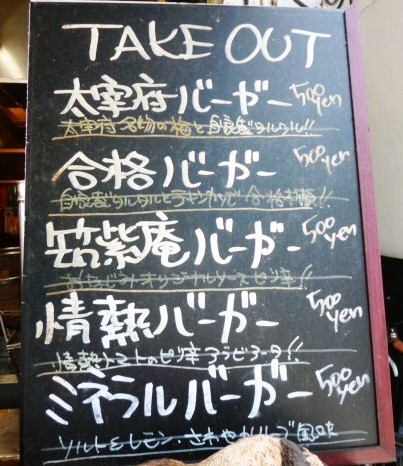 TAKE OUT
太宰府バーガー 500yen
太宰府名物の梅と自家製タルタル!!
合格バーガー 500yen
自家製タルタルとチキンカツで合格祈願!!
筑紫庵バーガー 500yen
おなじみオリジナルソースピリ辛!!
情熱バーガー 500yen
情熱トマトのピリ辛アラビアータ!!
ミネラルバーガー 500yen
ソルト&レモン・さわやかハーブ風味